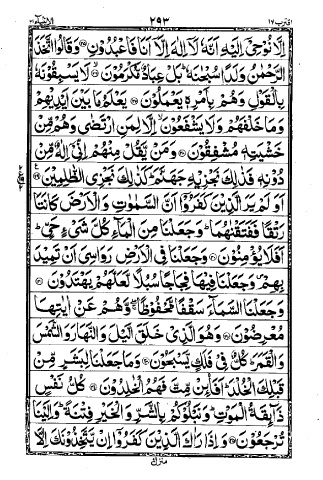 اقترب ١٧ ٢٩٣ الانبيآء ٢١
اِلَّا نُوْحِىْۤ اِلَيْهِ اَنَّهٗ لَاۤ اِلٰهَ اِلَّاۤ اَنَا فَاعْبُدُوْنِ ۝۲۵ وَقَالُوا اتَّخَذَ
الرَّحْمٰنُ وَلَدًا سُبْحٰنَهٗ ؕ بَلْ عِبَادٌ مُّكْرَمُوْنَ ۝۲۶ لَا يَسْبِقُوْنَهٗ
بِالْقَوْلِ وَهُمْ بِاَمْرِهٖ يَعْمَلُوْنَ ۝۲۷ يَعْلَمُ مَا بَيْنَ اَيْدِيْهِمْ
وَمَا خَلْفَهُمْ وَلَا يَشْفَعُوْنَ ۙ اِلَّا لِمَنِ ارْتَضٰى وَهُمْ مِّنْ
خَشْيَتِهٖ مُشْفِقُوْنَ ۝۲۸ وَمَنْ يَّقُلْ مِنْهُمْ اِنِّىْۤ اِلٰهٌ مِّنْ
دُوْنِهٖ فَذٰلِكَ نَجْزِيْهِ جَهَنَّمَ ؕ كَذٰلِكَ نَجْزِى الظّٰلِمِيْنَ ۝۲۹
اَوَلَمْ يَرَ الَّذِيْنَ كَفَرُوْۤا اَنَّ السَّمٰوٰتِ وَالْاَرْضَ كَانَتَا
رَتْقًا فَفَتَقْنٰهُمَا ؕ وَجَعَلْنَا مِنَ الْمَآءِ كُلَّ شَىْءٍ حَىٍّ ؕ
اَفَلَا يُؤْمِنُوْنَ ۝۳۰ وَجَعَلْنَا فِى الْاَرْضِ رَوَاسِىَ اَنْ تَمِيْدَ
بِهِمْ ۪ وَجَعَلْنَا فِيْهَا فِجَاجًا سُبُلًا لَّعَلَّهُمْ يَهْتَدُوْنَ ۝۳۱
وَجَعَلْنَا السَّمَآءَ سَقْفًا مَّحْفُوْظًا ۖ وَّهُمْ عَنْ اٰيٰتِهَا
مُعْرِضُوْنَ ۝۳۲ وَهُوَ الَّذِىْ خَلَقَ الَّيْلَ وَالنَّهَارَ وَالشَّمْسَ
وَالْقَمَرَ ؕ كُلٌّ فِىْ فَلَكٍ يَّسْبَحُوْنَ ۝۳۳ وَمَا جَعَلْنَا لِبَشَرٍ مِّنْ
قَبْلِكَ الْخُلْدَ ؕ اَفَا۟ئِنْ مِّتَّ فَهُمُ الْخٰلِدُوْنَ ۝۳۴ كُلُّ نَفْسٍ
ذَآئِقَةُ الْمَوْتِ ؕ وَنَبْلُوْكُمْ بِالشَّرِّ وَالْخَيْرِ فِتْنَةً ؕ وَاِلَيْنَا
تُرْجَعُوْنَ ۝۳۵ وَاِذَا رَاٰكَ الَّذِيْنَ كَفَرُوْۤا اِنْ يَّتَّخِذُوْنَكَ اِلَّا
منزل